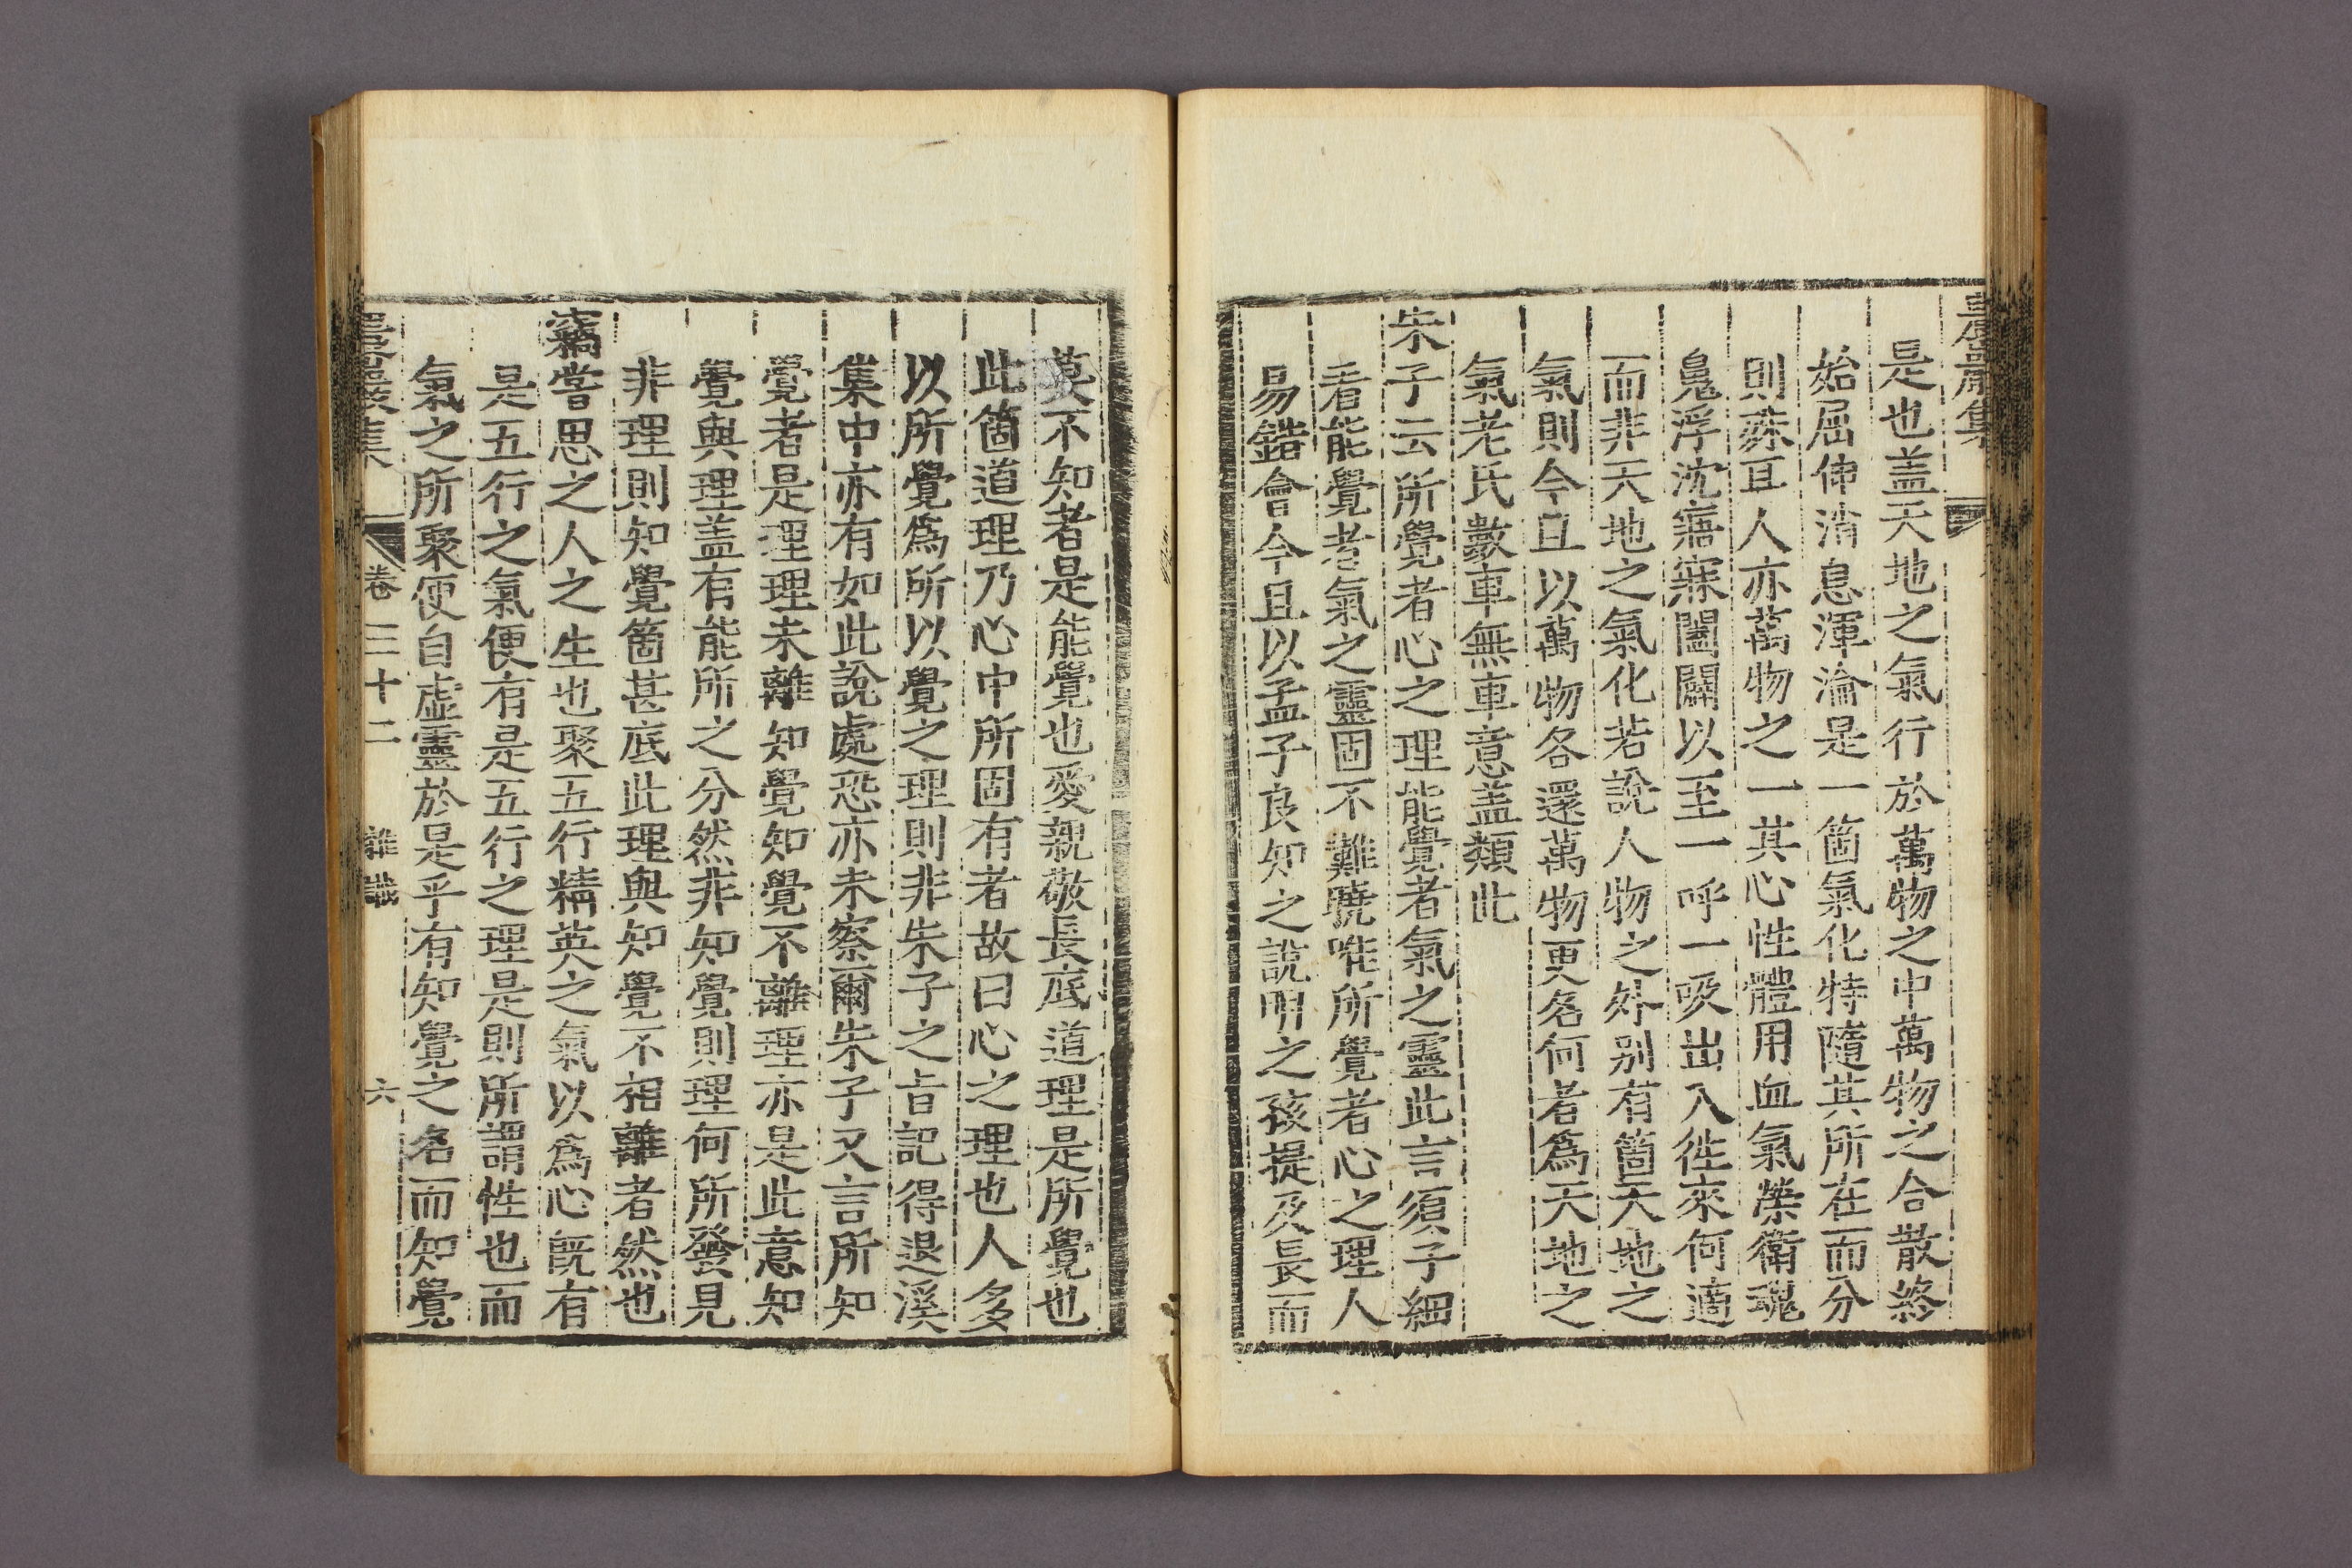 是也盖天地之氣行於萬物之中萬物之合散終
始屈伸消息渾淪是一箇氣化特隨其所在而分
則蔴亘人亦萬物之一其心性體用血氣榮衛魂
鬼浮沈寤寐闔闢以至一呼一吸出入徃來何適
而非天地之氣化若說人物之外别有箇天地之
氣則今且以萬物各還萬物更名何者爲天地之
氣老氏數車無車意盖類此
朱子云所覺者心之理能覺者氣之靈此言須子細
看能覺者氣之靈固不難曉唯所覺者心之理人
易錯會今且以孟子良知之說明之孩提及長而
莫不知者是能覺也愛親敬長底道理是所覺也
此箇道理乃心中所固有者故曰心之理也人多
以所覺爲所以覺之理則非朱子之旨記得退溪
集中亦有如此說處恐亦未察爾朱子又言所知
覺者是理理未離知覺知覺不離理亦是此意知
覺與理盖有能所之分然非知覺則理何所發見
非理則知覺箇甚底此理與知覺不相離者然也
竊嘗思之人之生也聚五行精英之氣以爲心旣有
是五行之氣便有是五行之理是則所謂性也而
氣之所聚便自虛靈於是乎有知覺之名而知覺
卷三十二 雜識 六